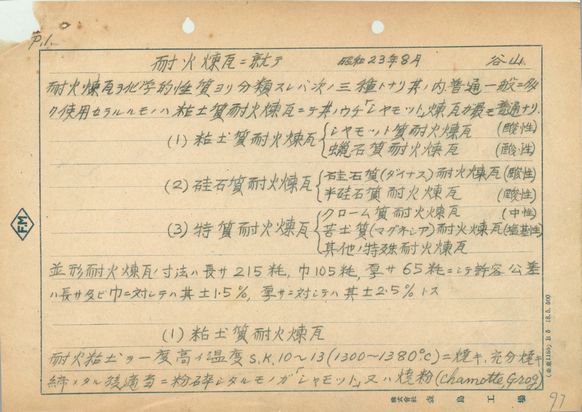 P.1.
耐火煉瓦ニ就テ 昭和23年8月 谷山
耐火煉瓦ヲ化学的性質ヨリ分類スレバ次ノ三種トナリ其ノ内普通一般ニ多
ク使用セラルルモノハ粘土質耐火煉瓦ニテ其ノウチ「シャモット」煉瓦ガ最モ普通ナリ.
(1) 粘土質耐火煉瓦 シャモット質耐火煉瓦 (酸性)
蠟石質耐火煉瓦 (酸性)
(2) 硅石質耐火煉瓦 硅石質(ダイナス)耐火煉瓦 (酸性)
半硅石質耐火煉瓦 (酸性)
(3) 特質耐火煉瓦 クローム質耐火煉瓦 (中性)
苦土質(マグネシア)耐火煉瓦 (塩基性)
其他ノ特殊耐火煉瓦
並形耐火煉瓦ノ寸法ハ長サ215粍, 巾105粍, 厚サ65粍ニシテ許容公差
ハ長サ及ビ巾ニ対シテハ其±1.5%, 厚サニ対シテハ其±2.5%トス
(1) 粘土質耐火煉瓦
耐火粘土ヲ一度高イ温度S.K.10~13(1300~1380°C)ニ焼キ, 充分焼キ
締メタル後適当ニ粉砕シタルモノガ「シャモット」又ハ焼粉(chamotte Grog)
FM
株式会社 工場
97